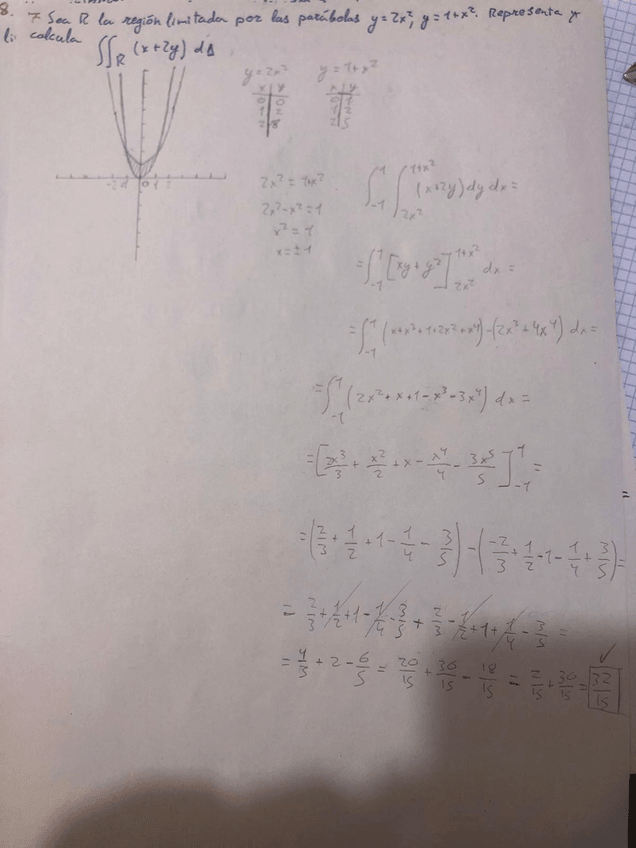 8. 7 Sea R la región limitada por las parábolas y=2x², y=1+x². Representa y
calcula ∬_R (x+2y) dA
y=2x² y=1+x²
x | y x | y
0 | 0 0 | 1
1 | 2 1 | 2
2 | 8 2 | 5
-2 -1 0 1 2
2x² = 1+x²
2x²-x² = 1
x² = 1
x = ±1
∫_{-1}^{1} ∫_{2x²}^{1+x²} (x+2y) dy dx =
= ∫_{-1}^{1} [xy + y²]_{2x²}^{1+x²} dx =
= ∫_{-1}^{1} (x+x³+1+2x²+x⁴)-(2x³+4x⁴) dx =
= ∫_{-1}^{1} (2x²+x+1-x³-3x⁴) dx =
= [2x³/3 + x²/2 + x - x⁴/4 - 3x⁵/5]_{-1}^{1} =
= (2/3 + 1/2 + 1 - 1/4 - 3/5) - (-2/3 + 1/2 - 1 - 1/4 + 3/5) =
= 2/3 + 1/2 + 1 - 1/4 - 3/5 + 2/3 - 1/2 + 1 + 1/4 - 3/5 =
= 4/3 + 2 - 6/5 = 20/15 + 30/15 - 18/15 = 2/15 + 30/15 = 32/15 ✓